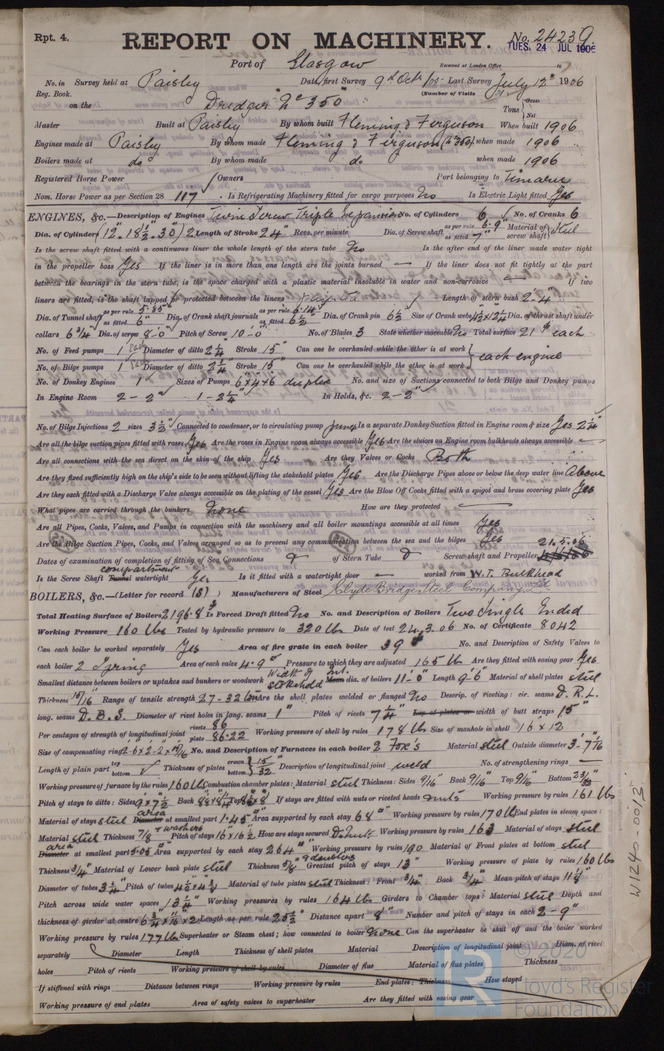 Rpt. 4.
REPORT ON MACHINERY.
No. 24239
TUES. 24 JUL 1906
Port of Glasgow
Received at London Office
No. in Survey held at Paisley Date, first Survey 9th Oct/05 Last Survey July 12th 1906
Reg. Book. (Number of Visits
on the Dredger "No 350" Tons Gross Net
Master Built at Paisley By whom built Fleming & Ferguson When built 1906
Engines made at Paisley By whom made Fleming & Ferguson (No 350) when made 1906
Boilers made at do By whom made do when made 1906
Registered Horse Power Owners Port belonging to Timaru
Nom. Horse Power as per Section 28 117 Is Refrigerating Machinery fitted for cargo purposes No Is Electric Light fitted Yes
ENGINES, &c.—Description of Engines Twin Screw Triple Expansion No. of Cylinders 6 No. of Cranks 6
Dia. of Cylinders 12.18½.30/2 Length of Stroke 24" Revs. per minute Dia. of Screw shaft as per rule 6.9 as fitted 7" Material of screw shaft Steel
Is the screw shaft fitted with a continuous liner the whole length of the stern tube No Is the after end of the liner made water tight
in the propeller boss Yes If the liner is in more than one length are the joints burned — If the liner does not fit tightly at the part
between the bearings in the stern tube, is the space charged with a plastic material insoluble in water and non-corrosive — If two
liners are fitted, is the shaft lapped or protected between the liners Length of stern bush 2-4
Dia. of Tunnel shaft as per rule 5.85" as fitted 6" Dia. of Crank shaft journals as per rule 6.14" as fitted 6½ Dia. of Crank pin 6½ Size of Crank webs Dia. of thrust shaft under
collars 6¾ Dia. of screw 8-0 Pitch of Screw 10-0 No. of Blades 3 State whether moveable No Total surface 21 each
No. of Feed pumps 1 Diameter of ditto 2¼ Stroke 15" Can one be overhauled while the other is at work
each engine
No. of Bilge pumps 1 Diameter of ditto 2¼ Stroke 15" Can one be overhauled while the other is at work
No. of Donkey Engines 1 Sizes of Pumps 6"x4x6 duplex No. and size of Suctions connected to both Bilge and Donkey pumps
In Engine Room 2-2" 1-2½" In Holds, &c. 2-2"
No. of Bilge Injections 2 sizes 3½" Connected to condenser, or to circulating pump pump Is a separate Donkey Suction fitted in Engine room & size Yes 2¼"
Are all the bilge suction pipes fitted with roses Yes Are the roses in Engine room always accessible Yes Are the sluices on Engine room bulkheads always accessible —
Are all connections with the sea direct on the skin of the ship Yes Are they Valves or Cocks Both
Are they fixed sufficiently high on the ship's side to be seen without lifting the stokehold plates Yes Are the Discharge Pipes above or below the deep water line Above
Are they each fitted with a Discharge Valve always accessible on the plating of the vessel Yes Are the Blow Off Cocks fitted with a spigot and brass covering plate Yes
What pipes are carried through the bunkers None How are they protected —
Are all Pipes, Cocks, Valves, and Pumps in connection with the machinery and all boiler mountings accessible at all times Yes
Are the Bilge Suction Pipes, Cocks, and Valves arranged so as to prevent any communication between the sea and the bilges Yes
Dates of examination of completion of fitting of Sea Connections of Stern Tube Screw shaft and Propeller 21.5.06
Is the Screw Shaft Tunnel compartment watertight Yes Is it fitted with a watertight door — worked from W.T. Bulkhead
BOILERS, &c.—(Letter for record (S)) Manufacturers of Steel Clyde Bridge Steel Company Ltd
Total Heating Surface of Boilers 2196.8 Is Forced Draft fitted No No. and Description of Boilers Two Single Ended
Working Pressure 160 lbs Tested by hydraulic pressure to 320 lbs Date of test 24.3.06 No. of Certificate 8042
Can each boiler be worked separately Yes Area of fire grate in each boiler 39 No. and Description of Safety Valves to
each boiler 2 Spring Area of each valve 4.9" Pressure to which they are adjusted 165 lb Are they fitted with easing gear Yes
Smallest distance between boilers or uptakes and bunkers or woodwork Width of stokehold Mean dia. of boilers 11-0 Length 9-6 Material of shell plates steel
Thickness 15/16" Range of tensile strength 27-32 tons Are the shell plates welded or flanged No Descrip. of riveting: cir. seams D.R.L.
long. seams D.B.S. Diameter of rivet holes in long. seams 1" Pitch of rivets 7¼" width of butt straps 15"
Per centages of strength of longitudinal joint rivets 86 plate 86.22 Working pressure of shell by rules 178 lb Size of manhole in shell 16"x12
Size of compensating ring No. and Description of Furnaces in each boiler 2 Fox's Material steel Outside diameter 3-7⅞
Length of plain part top bottom Thickness of plates crown bottom 15/32" Description of longitudinal joint weld No. of strengthening rings —
Working pressure of furnace by the rules 160 lb Combustion chamber plates: Material steel Thickness: Sides 9/16" Back 9/16" Top 9/16" Bottom
Pitch of stays to ditto: Sides Back Top If stays are fitted with nuts or riveted heads nuts Working pressure by rules 161 lb
Material of stays steel area at smallest part 1.45" Area supported by each stay 68" Working pressure by rules 170 lb End plates in steam space:
Material steel Thickness 7/8" & washers Pitch of stays 16"x16½ How are stays secured D. nuts Working pressure by rules 163 Material of stays steel
area at smallest part 5.05" Area supported by each stay 264" Working pressure by rules 190 Material of Front plates at bottom steel
Thickness ¾" Material of Lower back plate steel Thickness 5/8" & doublers Greatest pitch of stays 13" Working pressure of plate by rules 160 lb
Diameter of tubes 3¼" Pitch of tubes 4½x4¾ Material of tube plates steel Thickness: Front ¾" Back ¾" Mean pitch of stays 11¼"
Pitch across wide water spaces 13¼" Working pressures by rules 164 lb Girders to Chamber tops: Material steel Depth and
thickness of girder at centre Length as per rule 25½" Distance apart 8" Number and pitch of stays in each 2-9"
Working pressure by rules 177 lb Superheater or Steam chest; how connected to boiler None Can the superheater be shut off and the boiler worked
separately Diameter Length Thickness of shell plates Material Description of longitudinal joint Diam. of rivet
holes Pitch of rivets Working pressure of shell by rules Diameter of flue Material of flue plates Thickness
If stiffened with rings Distance between rings Working pressure by rules End plates: Thickness How stayed
Working pressure of end plates Area of safety valves to superheater Are they fitted with easing gear
W1240-0013
© 2020
Lloyd's Register
Foundation